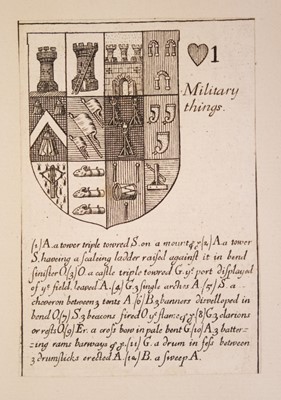 1
Military
things.
(1) A. a tower triple towred S. on a mount (2) A. a tower
S. haveing a scaleing ladder raised against it in bend
sinister O (3) O a castle triple towred G. yᵉ port displayed
of yᵉ field, leaved A. (4) G. 3 single arches A (5) S. a
cheveron between 3 tents A (6) B 3 banners disvelloped in
bend O (7) S 3 beacons fired O yᵉ flame (8) G 3 clarions
or rests O (9) Er. a cross bow in pale bent G (10) A 3 batter-
ing rams barways (11) G. a drum in fess between
3 drumsticks erected A (12) B. a sweep A.